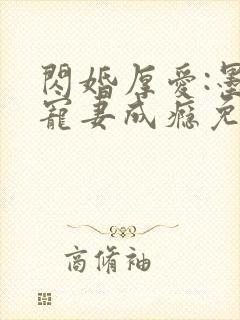 閃婚厚愛:墨
寵妻成癮免
商脩袖